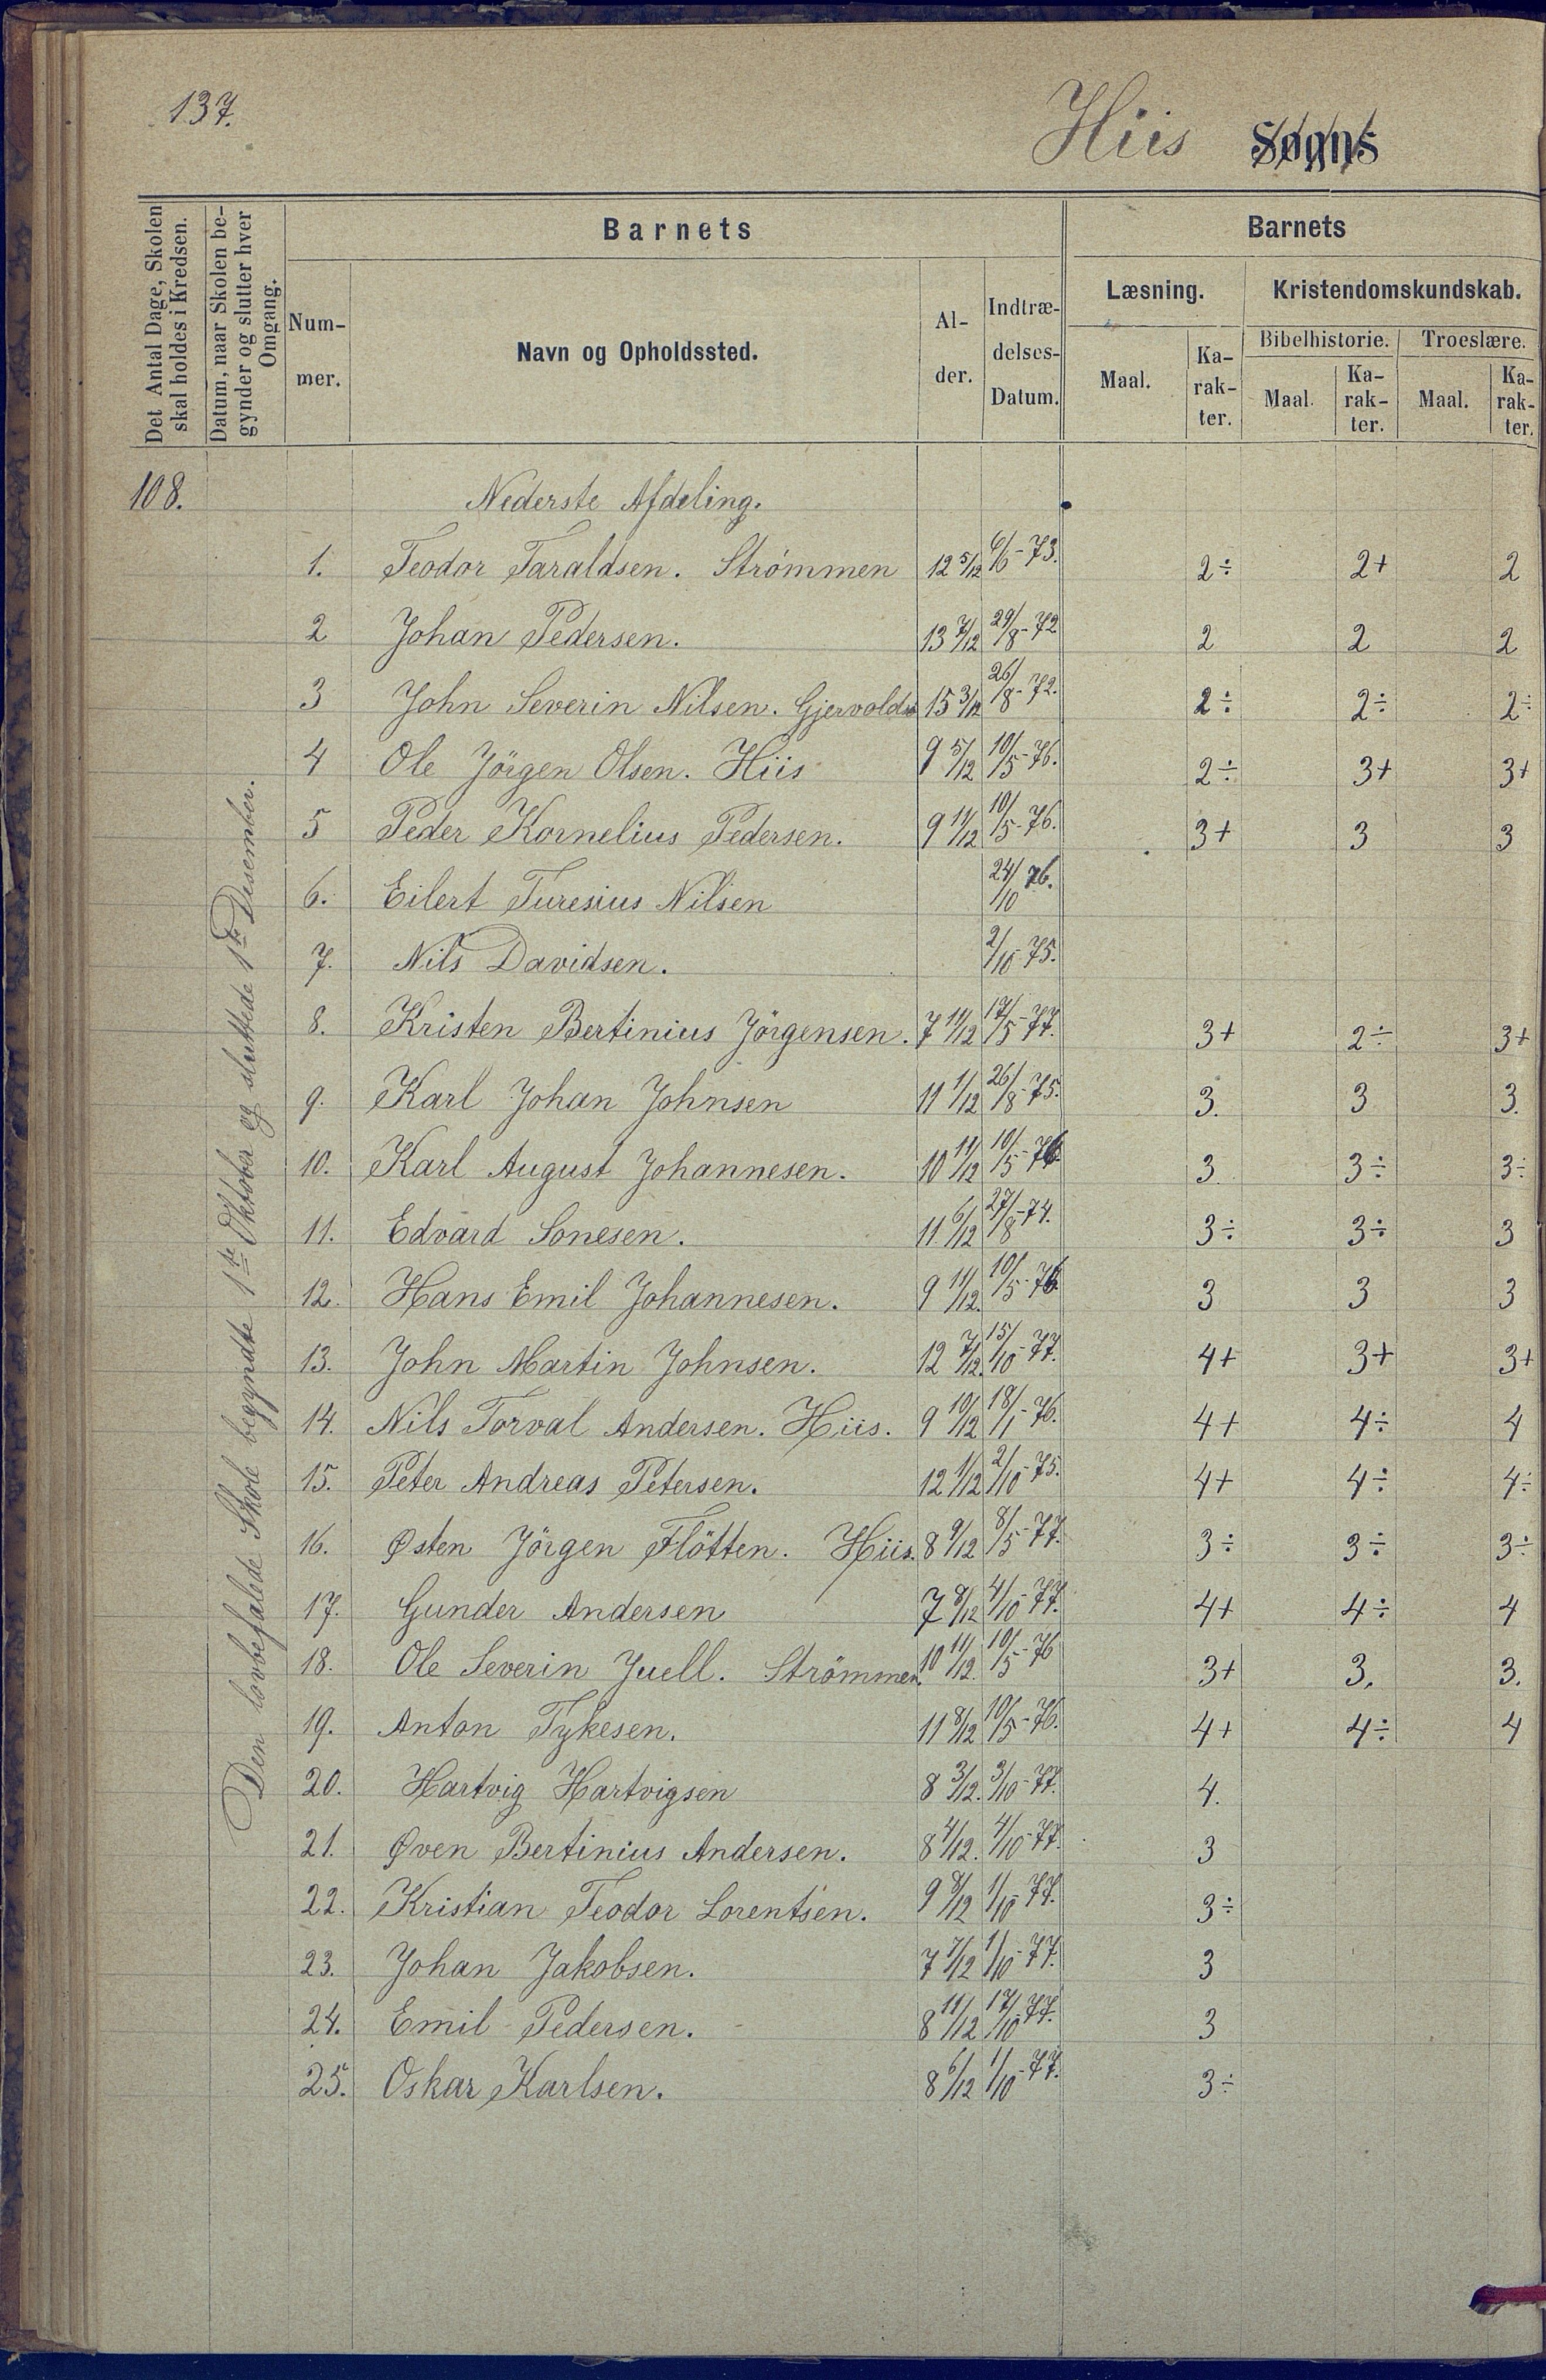 137.
Hiis Sogns
Det Antal Dage, Skolen skal holdes i Kredsen.
Datum, naar Skolen be-gynder og slutter hver Omgang.
Barnets
Num-mer.
Navn og Opholdssted.
Al-der.
Indtræ-delses-Datum.
Barnets
Læsning.
Maal.
Ka-rak-ter.
Kristendomskundskab.
Bibelhistorie.
Maal.
Ka-rak-ter.
Troeslære.
Maal.
Ka-rak-ter.
108.
Den lovbefalede Skole begyndte 1ste Oktober og sluttede 1ste Desember.
Nederste Afdeling.
1. Teodor Taraldsen. Strömmen 12 5/12 6/6-73. 2÷ 2+ 2
2 Johan Pedersen. 13 7/12 29/8-72 2 2 2
3 John Severin Nilsen. Gjervolds 15 3/12 26/8-72. 2÷ 2÷ 2÷
4 Ole Jörgen Olsen. Hiis 9 5/12 10/5-76. 2÷ 3+ 3+
5 Peder Kornelius Pedersen. 9 11/12 10/5-76. 3+ 3 3
6. Eilert Turesius Nilsen 24/10 76.
7. Nils Davidsen. 2/10-75.
8. Kristen Bertinius Jörgensen. 7 11/12 17/5-77. 3+ 2÷ 3+
9. Karl Johan Johnsen 11 1/12 26/8-75. 3. 3 3.
10. Karl August Johannesen. 10 11/12 10/5-76 3 3÷ 3÷
11. Edvard Sonesen. 11 6/12 27/8-74. 3÷ 3÷ 3
12. Hans Emil Johannesen. 9 11/12. 10/5-76 3 3 3
13. John Martin Johnsen. 12 7/12. 15/10-77. 4+ 3+ 3+
14. Nils Torval Andersen. Hiis. 9 10/12 18/1-76. 4+ 4÷ 4
15. Peter Andreas Petersen. 12 1/12 2/10-75. 4+ 4÷ 4÷
16. Østen Jörgen Flötten. Hiis. 8 9/12 8/5-77. 3÷ 3÷ 3÷
17. Gunder Andersen 7 8/12 4/10-77. 4+ 4÷ 4
18. Ole Severin Juell. Strömmen. 10 11/12. 10/5-76 3+ 3. 3.
19. Anton Tykesen. 11 8/12 10/5-76. 4+ 4÷ 4
20. Hartvig Hartvigsen 8 3/12. 3/10-77. 4.
21. Øven Bertinius Andersen. 8 4/12. 4/10-77. 3
22. Kristian Teodor Lorentsen. 9 8/12 1/10-77. 3÷
23. Johan Jakobsen. 7 7/12 1/10-77. 3
24. Emil Pedersen. 8 11/12 17/10-77. 3
25. Oskar Karlsen. 8 6/12 1/10-77. 3÷